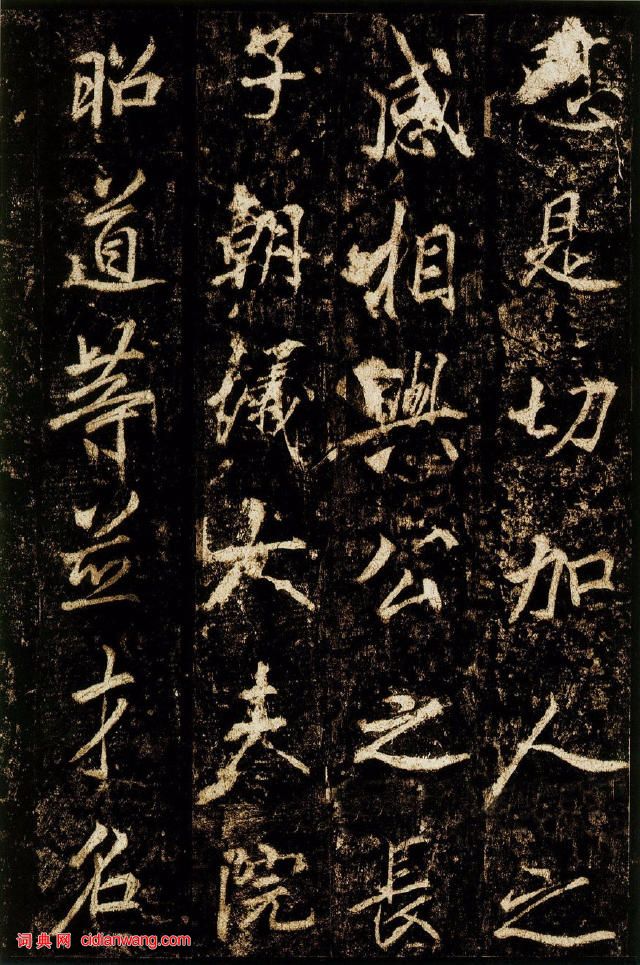 是切加人之
感相與公之長
子朝議大夫院
昭道等並才名
词典网 cidianwang.com